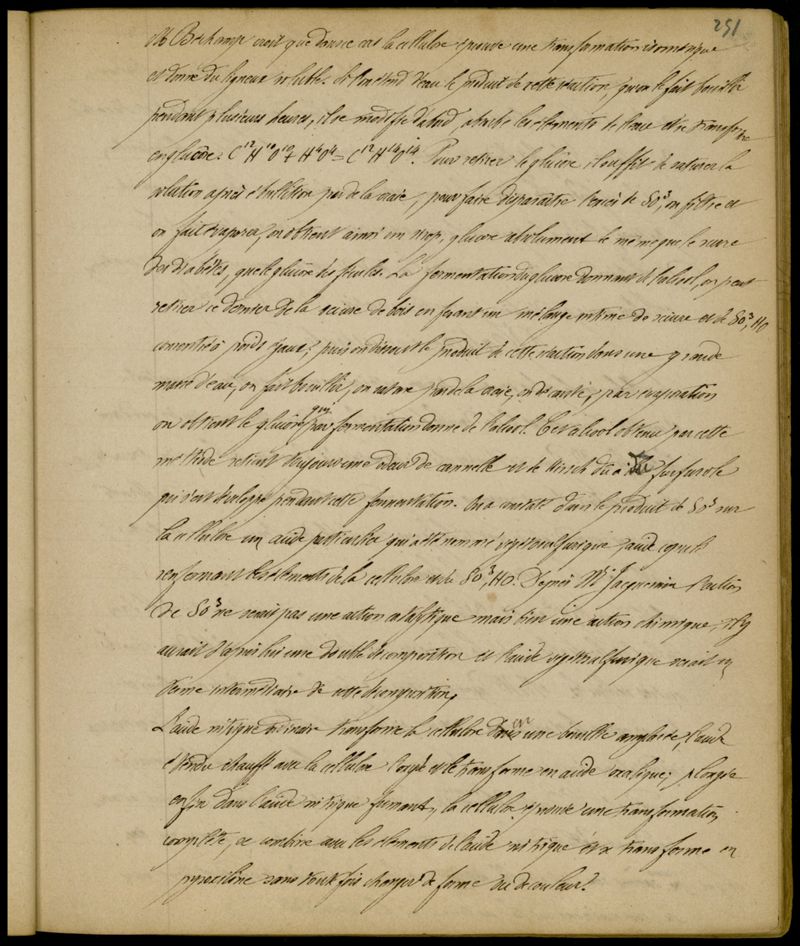 251
Mr Béchamp croit que dans ce cas la cellulose éprouve une transformation isomérique
et donne du ligneux soluble. Si l'on étend d'eau le produit de cette réaction, qu'on le fait bouillir
pendant plusieurs heures, il se modifie d'abord, absorbe les éléments de l'eau et se transforme
en glucose: C¹²H¹⁰O¹⁰ + H⁴O⁴ = C¹²H¹⁴O¹⁴. Pour retirer le glucose il suffit de saturer la
solution après ébullition par de la craie, pour faire disparaître l'excès de SO³, on filtre et
on fait évaporer, on obtient ainsi un sirop, glucose absolument le même que le sucre
des diabètes, que le glucose des fécules. La fermentation du glucose donnant de l'alcool, on peut
retirer ce dernier de la sciure de bois en faisant un mélange intime de sciure et de SO³, HO
concentré à poids égaux, puis on dissout le produit de cette réaction dans une grande
masse d'eau, on fait bouillir, on sature par de la craie, on décante, par évaporation
on obtient le glucose qui par fermentation donne de l'alcool. Cet alcool obtenu par cette
méthode retient toujours une odeur de cannelle et de kirsch dû à du furfurole
qui s'est développé pendant cette fermentation. On a constaté dans le produit de SO³ sur
la cellulose un acide particulier qui a été nommé végétosulfurique, acide copulé
renfermant les éléments de la cellulose et de SO³, HO. D'après Mr Jacquemin l'action
de SO³ ne serait pas une action catalytique mais bien une action chimique, il y
aurait d'après lui une double décomposition et l'acide végétosulfurique serait un
terme intermédiaire de cette décomposition.
L'acide nitrique ordinaire transforme la cellulose en une bouillie amylacée, l'acide
étendu chauffé avec la cellulose l'oxyde et le transforme en acide oxalique; plongée
enfin dans l'acide nitrique fumant, la cellulose éprouve une transformation
complète, se combine avec les éléments de l'acide nitrique et se transforme en
pyroxiline sans toutefois changer de forme ou de couleur.